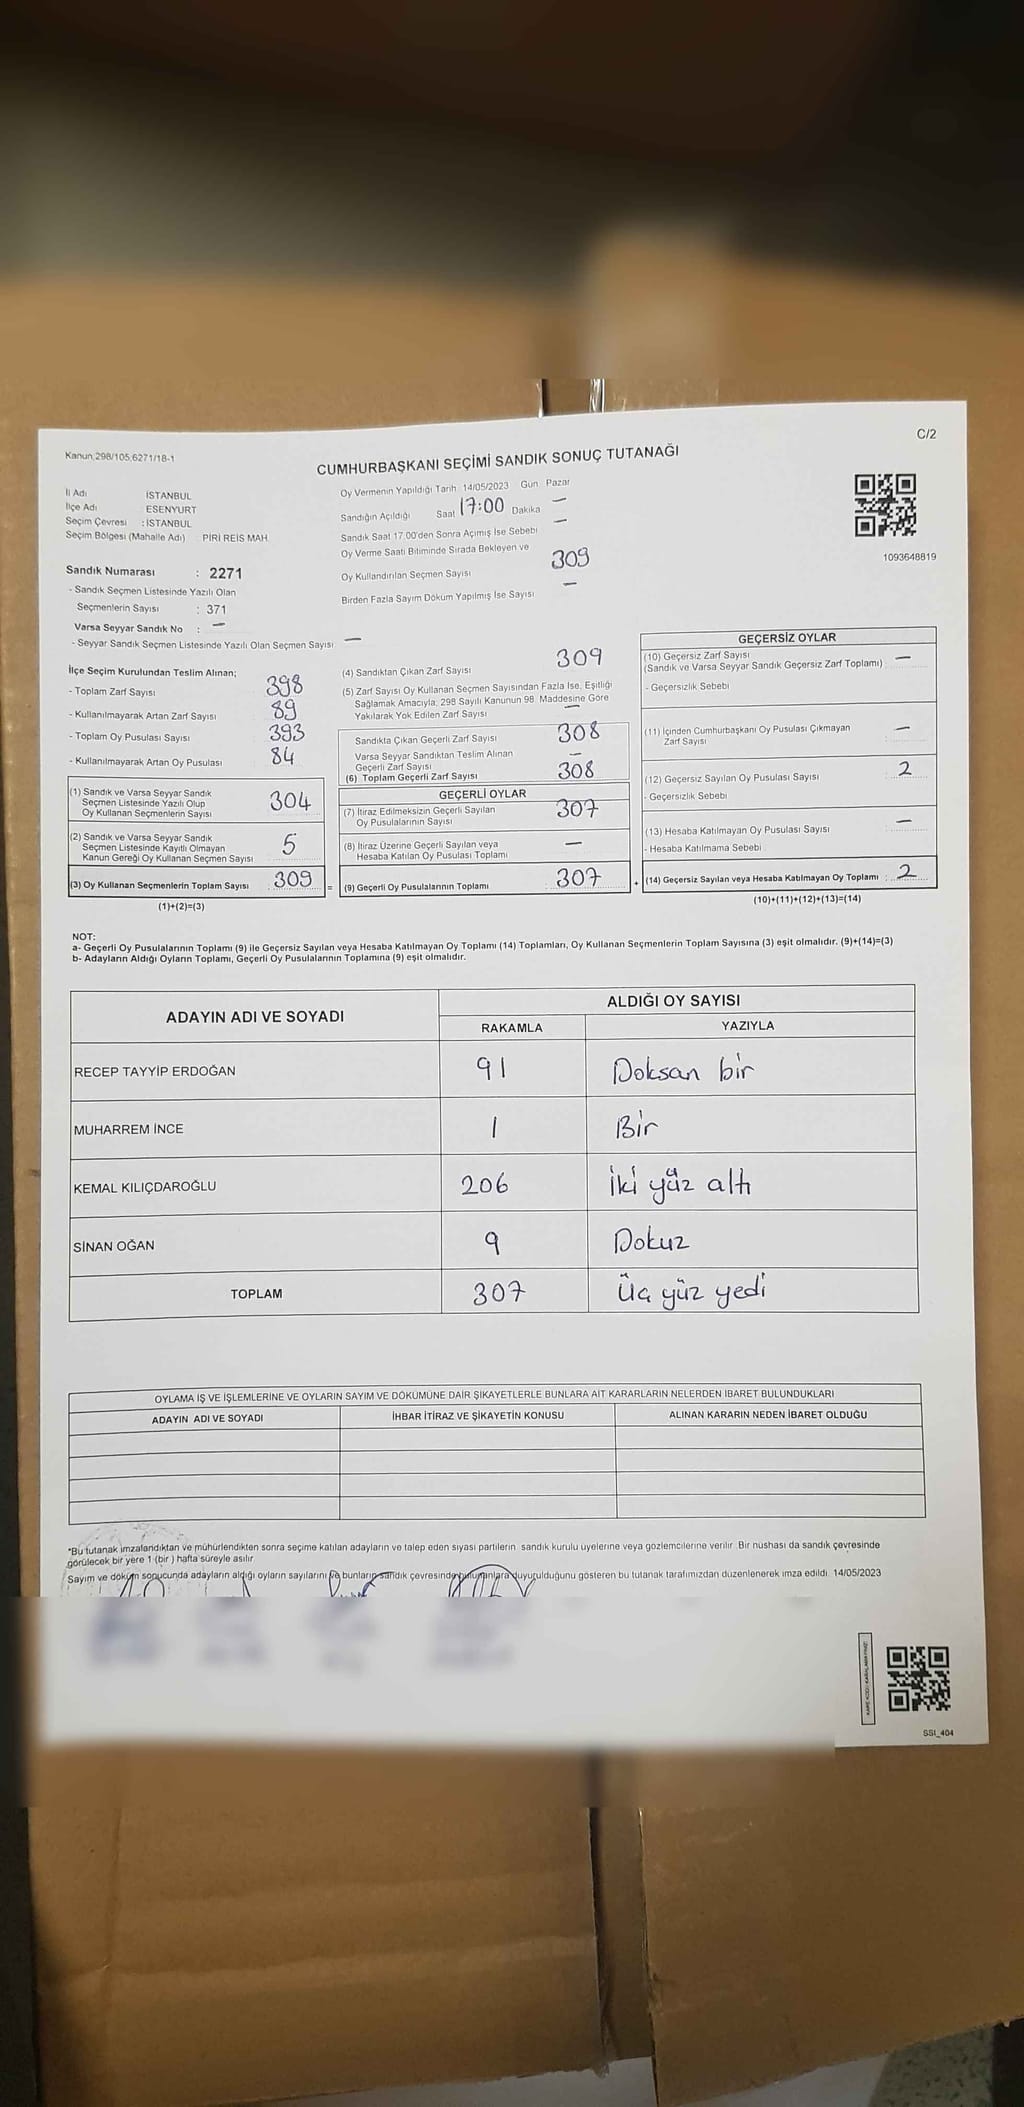 C/2
Kanun 298/105,6271/18-1
CUMHURBAŞKANI SEÇİMİ SANDIK SONUÇ TUTANAĞI
İl Adı İSTANBUL
İlçe Adı ESENYURT
Seçim Çevresi : İSTANBUL
Seçim Bölgesi (Mahalle Adı) PİRİ REİS MAH.
Oy Vermenin Yapıldığı Tarih 14/05/2023 Gün Pazar
Sandığın Açıldığı Saat 17:00 Dakika —
Sandık Saat 17.00'den Sonra Açımış İse Sebebi —
Oy Verme Saati Bitiminde Sırada Bekleyen ve
Oy Kullandırılan Seçmen Sayısı 309
Birden Fazla Sayım Döküm Yapılmış İse Sayısı —
1093648819
Sandık Numarası : 2271
- Sandık Seçmen Listesinde Yazılı Olan
Seçmenlerin Sayısı : 371
Varsa Seyyar Sandık No : —
- Seyyar Sandık Seçmen Listesinde Yazılı Olan Seçmen Sayısı —
İlçe Seçim Kurulundan Teslim Alınan;
- Toplam Zarf Sayısı 398
- Kullanılmayarak Artan Zarf Sayısı 89
- Toplam Oy Pusulası Sayısı 393
- Kullanılmayarak Artan Oy Pusulası 84
(1) Sandık ve Varsa Seyyar Sandık
Seçmen Listesinde Yazılı Olup
Oy Kullanan Seçmenlerin Sayısı 304
(2) Sandık ve Varsa Seyyar Sandık
Seçmen Listesinde Kayıtlı Olmayan
Kanun Gereği Oy Kullanan Seçmen Sayısı 5
(3) Oy Kullanan Seçmenlerin Toplam Sayısı : 309 =
(1)+(2)=(3)
(4) Sandıktan Çıkan Zarf Sayısı 309
(5) Zarf Sayısı Oy Kullanan Seçmen Sayısından Fazla İse, Eşitliği
Sağlamak Amacıyla; 298 Sayılı Kanunun 98. Maddesine Göre
Yakılarak Yok Edilen Zarf Sayısı —
Sandıkta Çıkan Geçerli Zarf Sayısı 308
Varsa Seyyar Sandıktan Teslim Alınan
Geçerli Zarf Sayısı —
(6) Toplam Geçerli Zarf Sayısı 308
GEÇERLİ OYLAR
(7) İtiraz Edilmeksizin Geçerli Sayılan
Oy Pusulalarının Sayısı 307
(8) İtiraz Üzerine Geçerli Sayılan veya
Hesaba Katılan Oy Pusulası Toplamı —
(9) Geçerli Oy Pusulalarının Toplamı 307 +
GEÇERSİZ OYLAR
(10) Geçersiz Zarf Sayısı
(Sandık ve Varsa Seyyar Sandık Geçersiz Zarf Toplamı) —
- Geçersizlik Sebebi
(11) İçinden Cumhurbaşkanı Oy Pusulası Çıkmayan
Zarf Sayısı —
(12) Geçersiz Sayılan Oy Pusulası Sayısı 2
- Geçersizlik Sebebi
(13) Hesaba Katılmayan Oy Pusulası Sayısı —
- Hesaba Katılmama Sebebi
(14) Geçersiz Sayılan veya Hesaba Katılmayan Oy Toplamı : 2
(10)+(11)+(12)+(13)=(14)
NOT:
a- Geçerli Oy Pusulalarının Toplamı (9) ile Geçersiz Sayılan veya Hesaba Katılmayan Oy Toplamı (14) Toplamları, Oy Kullanan Seçmenlerin Toplam Sayısına (3) eşit olmalıdır. (9)+(14)=(3)
b- Adayların Aldığı Oyların Toplamı, Geçerli Oy Pusulalarının Toplamına (9) eşit olmalıdır.
ADAYIN ADI VE SOYADI
ALDIĞI OY SAYISI
RAKAMLA YAZIYLA
RECEP TAYYİP ERDOĞAN 91 Doksan bir
MUHARREM İNCE 1 Bir
KEMAL KILIÇDAROĞLU 206 İki yüz altı
SİNAN OĞAN 9 Dokuz
TOPLAM 307 Üç yüz yedi
OYLAMA İŞ VE İŞLEMLERİNE VE OYLARIN SAYIM VE DÖKÜMÜNE DAİR ŞİKAYETLERLE BUNLARA AİT KARARLARIN NELERDEN İBARET BULUNDUKLARI
ADAYIN ADI VE SOYADI İHBAR İTİRAZ VE ŞİKAYETİN KONUSU ALINAN KARARIN NEDEN İBARET OLDUĞU
*Bu tutanak imzalandıktan ve mühürlendikten sonra seçime katılan adayların ve talep eden siyasi partilerin sandık kurulu üyelerine veya gözlemcilerine verilir. Bir nüshası da sandık çevresinde
görülecek bir yere 1 (bir) hafta süreyle asılır.
Sayım ve döküm sonucunda adayların aldığı oyların sayılarını ve bunların sandık çevresinde bulunanlara duyurulduğunu gösteren bu tutanak tarafımızdan düzenlenerek imza edildi. 14/05/2023
SSI_404